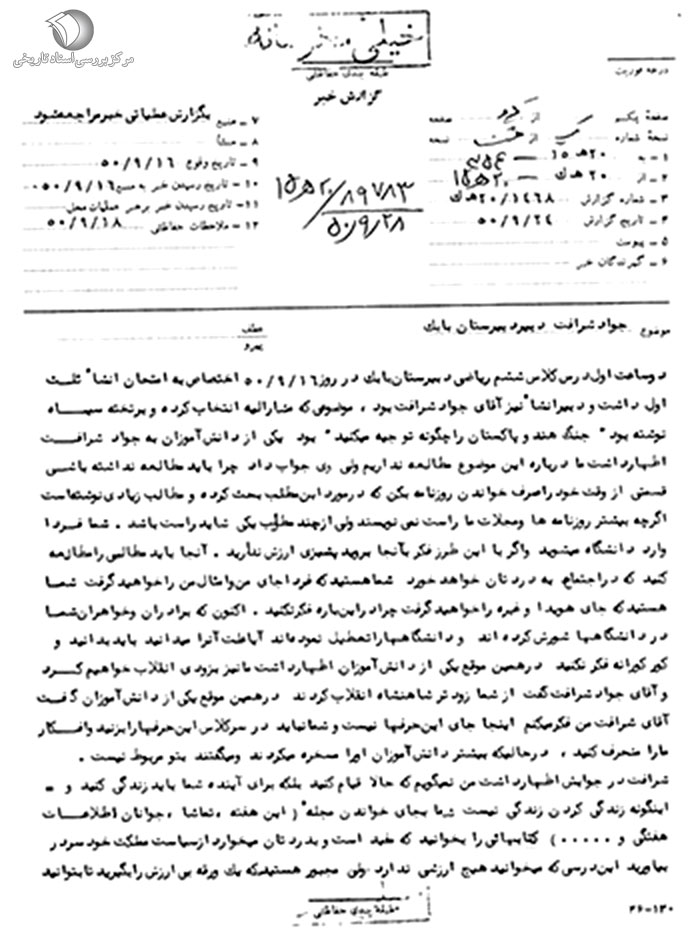 مرکز بررسی اسناد تاریخی
خیلی محرمانه
طبقه بندی حفاظتی
گزارش خبر
درجه فوریت
صفحه یکم از دو صفحه
نسخه شماره از نسخه
۱ - به ۲۰ ه‍ ۱۵
۲ - از ۲۰ ه‍ ك
۳ - شماره گزارش ۲۰/۱۴۶۸ ه‍ ك
۴ - تاریخ گزارش ۵۰/۹/۲۴
۵ - پیوست
۶ - گیرندگان خبر
۷ - منبع بگزارش عملیاتی خبر مراجعه شود
۸ - منشأ
۹ - تاریخ وقوع ۵۰/۹/۱۶
۱۰ - تاریخ رسیدن خبر به منبع ۵۰/۹/۱۶
۱۱ - تاریخ رسیدن خبر برهبر عملیات محل
۱۲ - ملاحظات حفاظتی ۵۰/۹/۱۸
۲۰ ه‍ ۱۵ / ۸۹۷۸۳
۵۰/۹/۲۸
موضوع جواد شرافت دبیر دبیرستان بابك
عطف
پیرو
دو ساعت اول درس کلاس ششم ریاضی دبیرستان بابك در روز ۵۰/۹/۱۶ اختصاص به امتحان انشاء ثلث
اول داشت و دبیر انشاء نیز آقای جواد شرافت بود ، موضوعی که مشارالیه انتخاب کرده و برتخته سیاه
نوشته بود " جنگ هند و پاکستان را چگونه توجیه میکنید " بود یکی از دانش آموزان به جواد شرافت
اظهار داشت ما درباره این موضوع مطالعه نداریم ولی وی جواب داد چرا باید مطالعه نداشته باشی
قسمتی از وقت خود را صرف خواندن روزنامه بکن که در مورد این مطلب بحث کرده و مطالب زیادی نوشته است
اگرچه بیشتر روزنامه ها و مجلات ما راست نمی نویسند ولی از چند مطلب یکی شاید راست باشد . شما فردا
وارد دانشگاه میشوید واگر با این طرز فکر بآنجا بروید پشیزی ارزش ندارید . آنجا باید مطالبی را مطالعه
کنید که در اجتماع به دردتان خواهد خورد شما هستید که فردا جای من وامثال من را خواهید گرفت شما
هستید که جای هویدا و غیره را خواهید گرفت چرا در این باره فکر نکنید . اکنون که برادران وخواهران شما
در دانشگاهها شورش کرده اند و دانشگاهها را تعطیل نموده اند آیا علت آنرا میدانید باید بدانید و
کورکورانه فکر نکنید در همین موقع یکی از دانش آموزان اظهار داشت ما نیز بزودی انقلاب خواهیم کرد
و آقای جواد شرافت گفت از شما زودتر شاهنشاه انقلاب کردند در همین موقع یکی از دانش آموزان گفت
آقای شرافت من فکر میکنم اینجا جای این حرفها نیست و شما نباید در سر کلاس این حرفها را بزنید وافکار
ما را منحرف کنید ، در حالیکه بیشتر دانش آموزان اورا مسخره میکردند ومیگفتند بتو مربوط نیست .
شرافت در جوابش اظهار داشت من نمیگویم که حالا قیام کنید بلکه برای آینده شما باید زندگی کنید و -
اینگونه زندگی کردن زندگی نیست شما بجای خواندن مجله ( این هفته ، تماشا ، جوانان اطلاعات
هفتگی و ..... ) کتابهائی را بخوانید که مفید است و بدردتان میخورد از سیاست مملکت خود سر در
بیاورید این درسی که میخوانید هیچ ارزشی ندارد ولی مجبور هستید که یك ورقه بی ارزش را بگیرید تا بتوانید
طبقه بندی حفاظتی
۲۶-۱۳۰